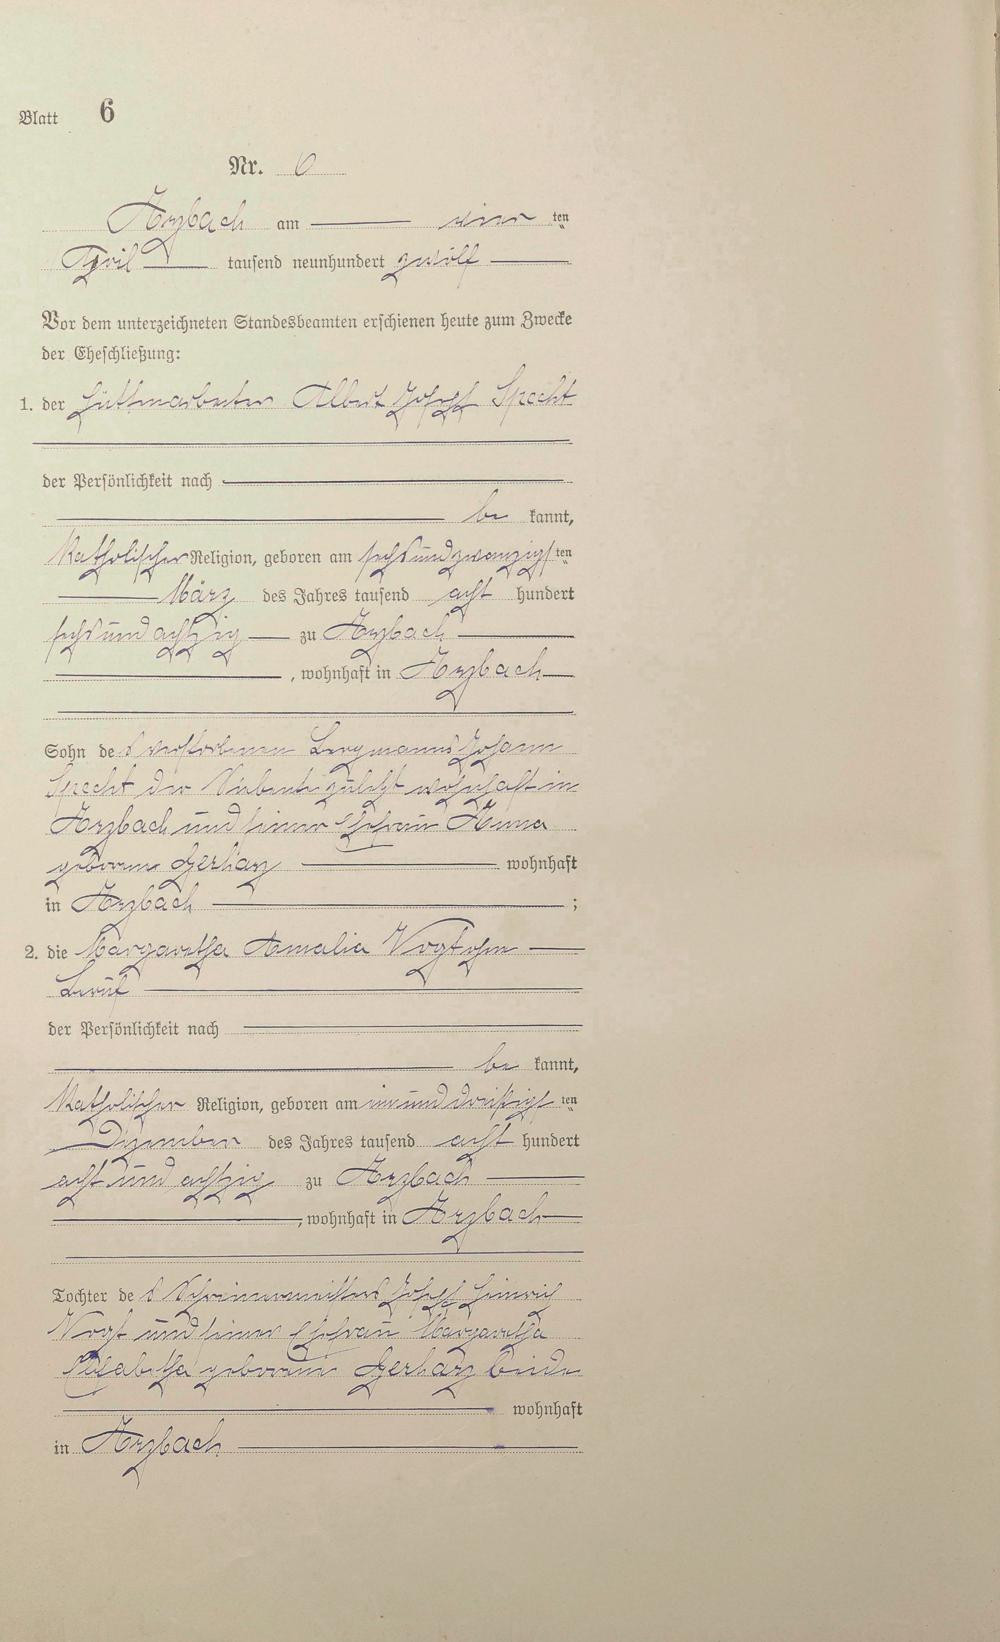 Blatt 6
Nr. 6
Arzbach am vier ten
April tausend neunhundert zwölf
Vor dem unterzeichneten Standesbeamten erschienen heute zum Zwecke
der Eheschließung:
1. der Hüttenarbeiter Albert Josef Specht
der Persönlichkeit nach
be kannt,
katholischer Religion, geboren am sechsundzwanzigs ten
März des Jahres tausend acht hundert
sechs und achtzig zu Arzbach
, wohnhaft in Arzbach
Sohn de s verstorbenen Bergmanns Johann
Specht der Siebente zuletzt wohnhaft in
Arzbach und seiner Ehefrau Anna
geborene Gerharz wohnhaft
in Arzbach ;
2. die Margaretha Amalia Vogt ohne
Beruf
der Persönlichkeit nach
be kannt,
katholischer Religion, geboren am einunddreißigs ten
Dezember des Jahres tausend acht hundert
acht und achtzig zu Arzbach
, wohnhaft in Arzbach
Tochter de s Schreinermeisters Josef Heinrich
Vogt und seiner Ehefrau Margaretha
Elisabetha geborene Gerharz beide
wohnhaft
in Arzbach